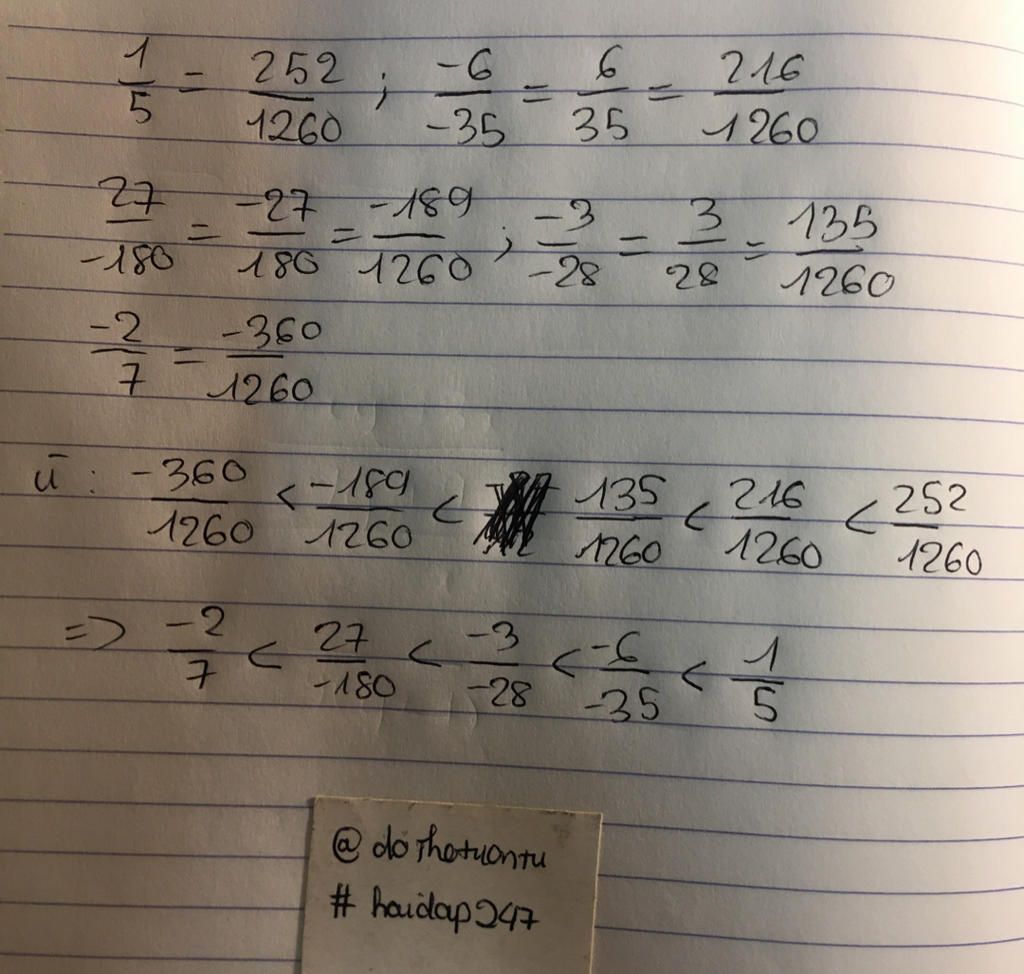 1/5 = 252/1260 ; -6/-35 = 6/35 = 216/1260
27/-180 = -27/180 = -189/1260 ; -3/-28 = 3/28 = 135/1260
-2/7 = -360/1260
: -360/1260 < -189/1260 < 135/1260 < 216/1260 < 252/1260
=> -2/7 < 27/-180 < -3/-28 < -6/-35 < 1/5
# hoidap247